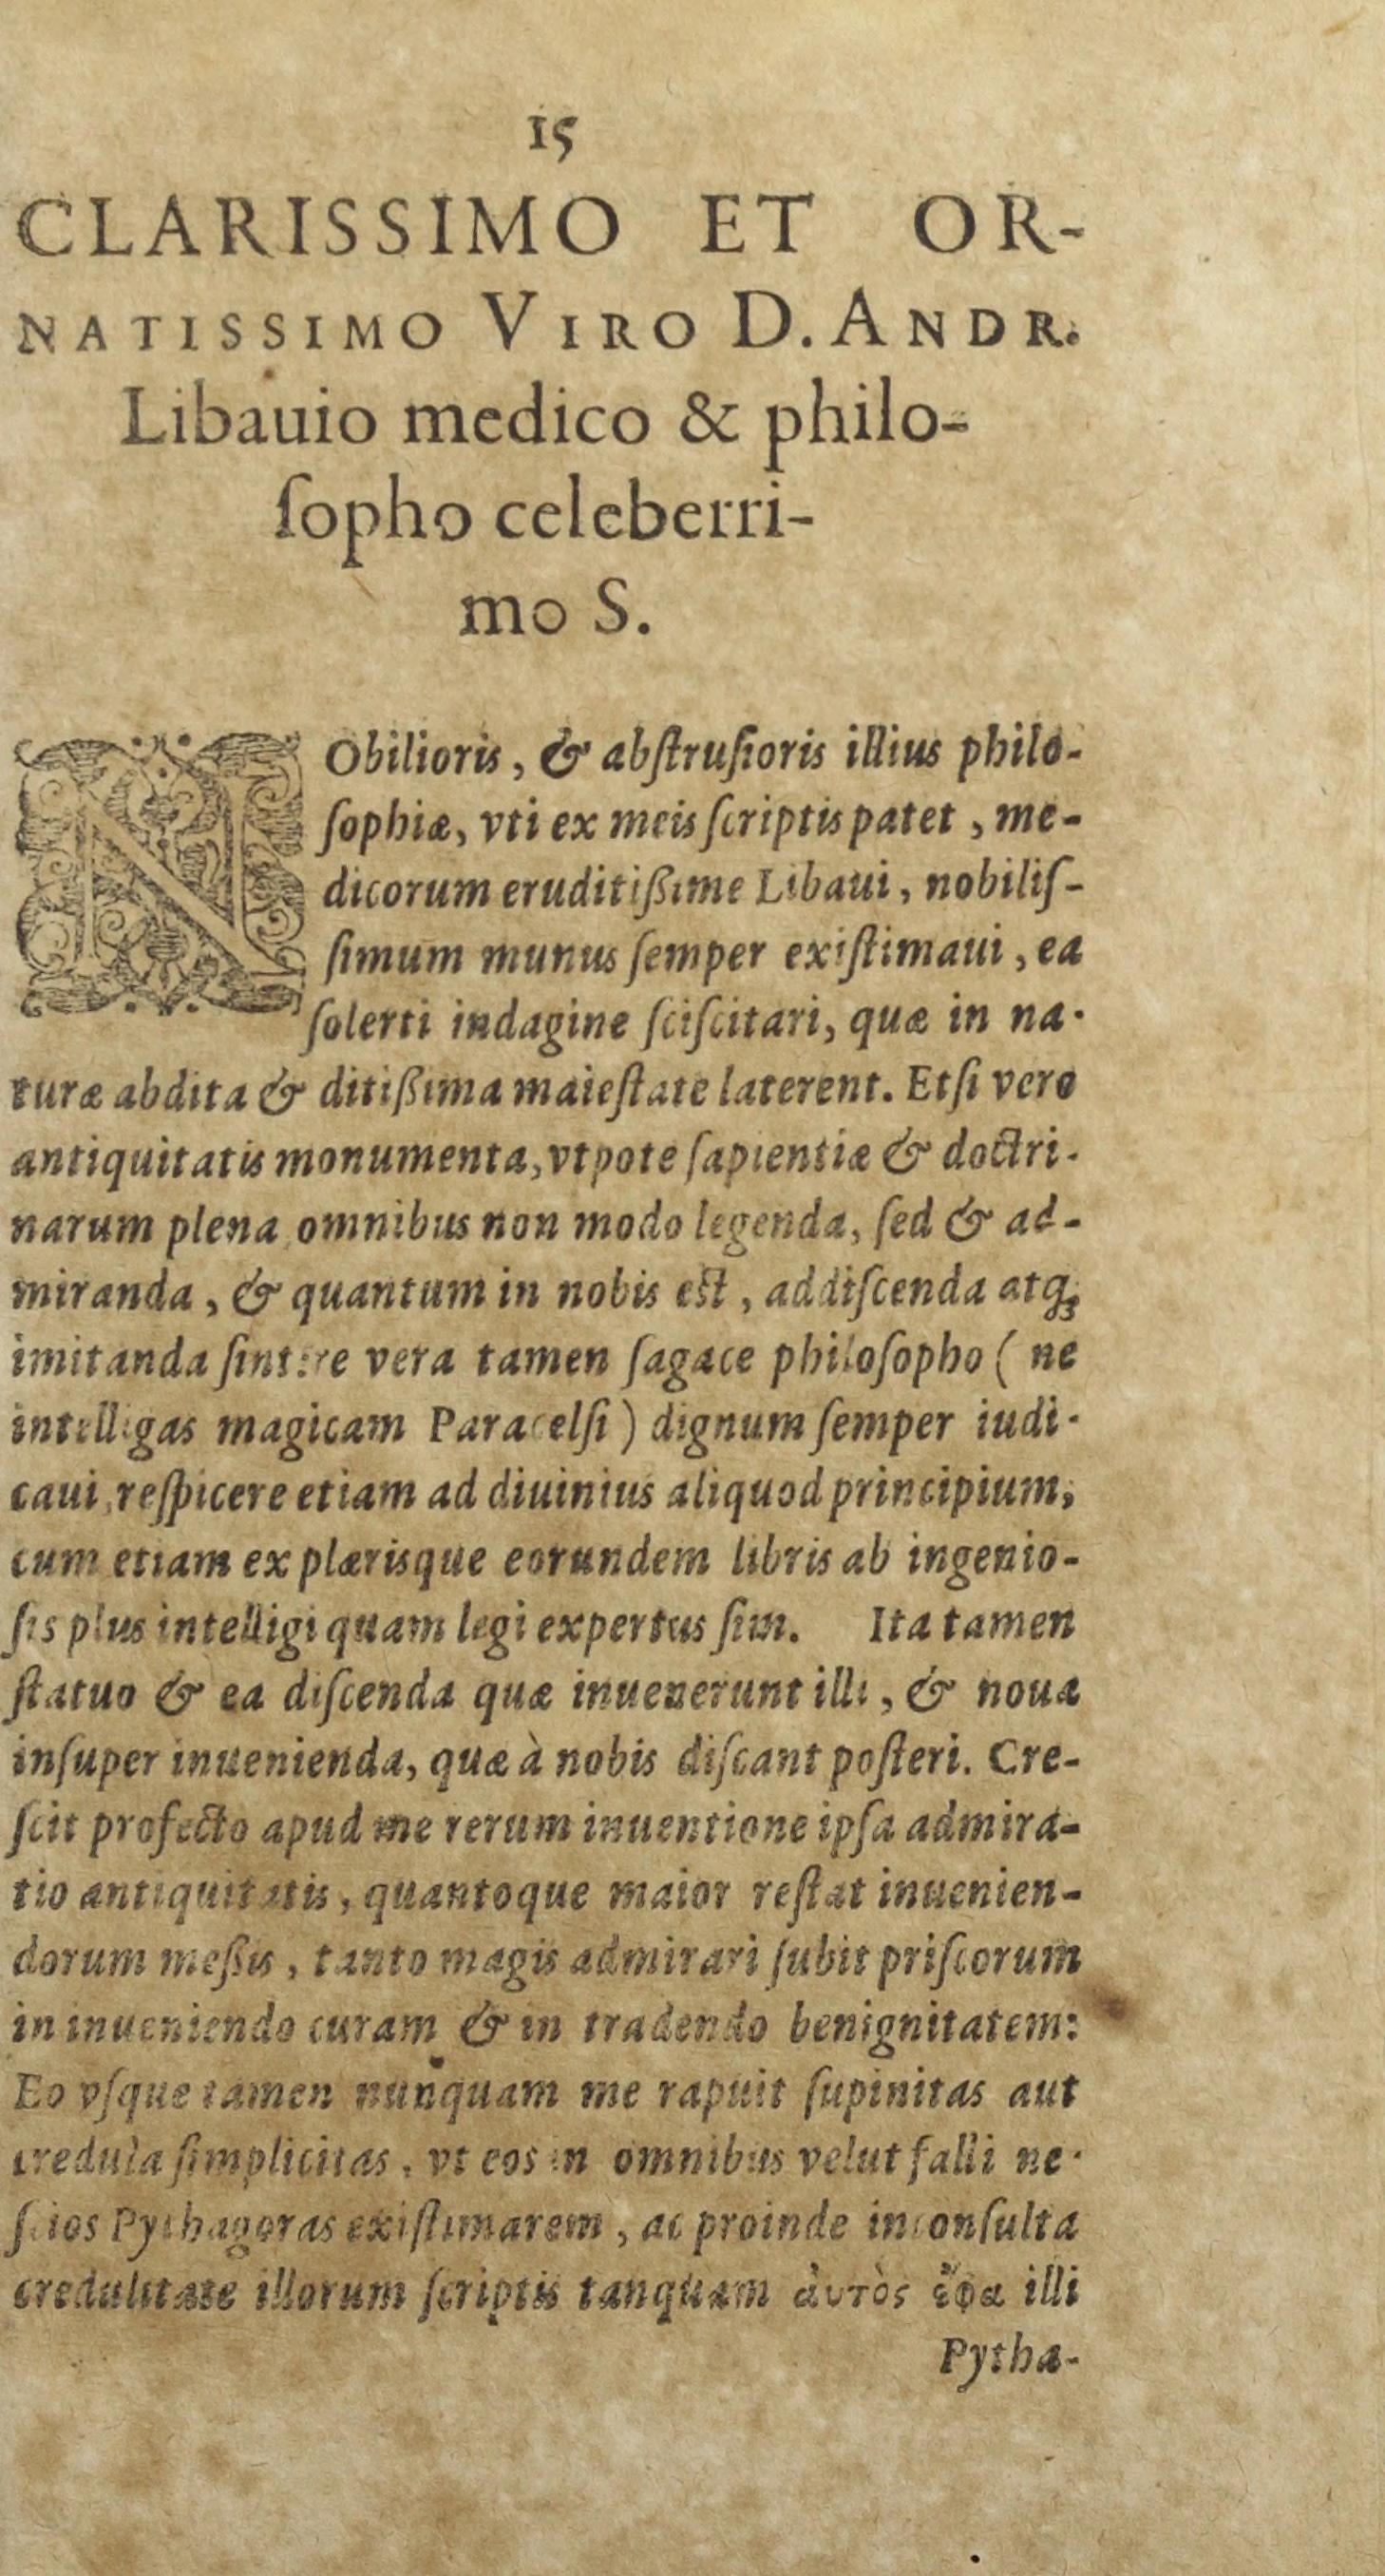 15
CLARISSIMO ET OR-
NATISSIMO VIRO D. ANDR.
Libauio medico & philo-
ſopho celeberri-
mo S.
NObilioris, & abſtruſioris illius philo-
ſophiæ, vti ex meis ſcriptis patet, me-
dicorum eruditißime Libaui, nobiliſ-
ſimum munus ſemper exiſtimaui, ea
ſolerti indagine ſciſcitari, quæ in na-
turæ abdita & ditißima maieſtate laterent. Etſi vero
antiquitatis monumenta, vtpote ſapientiæ & doctri-
narum plena omnibus non modo legenda, ſed & ad-
miranda, & quantum in nobis eſt, addiſcenda atq;
imitanda ſint: re vera tamen ſagace philoſopho ( ne
intelligas magicam Paracelſi ) dignum ſemper iudi-
caui, reſpicere etiam ad diuinius aliquod principium,
cum etiam ex plærisque eorundem libris ab ingenio-
ſis plus intelligi quam legi expertus ſim. Ita tamen
ſtatuo & ea diſcenda quæ inuenerunt illi, & noua
inſuper inuenienda, quæ à nobis diſcant poſteri. Cre-
ſcit profecto apud me rerum inuentione ipſa admira-
tio antiquitatis, quantoque maior reſtat inuenien-
dorum meßis, tanto magis admirari ſubit priſcorum
in inueniendo curam & in tradendo benignitatem:
Eo vſque tamen nunquam me rapuit ſupinitas aut
credula ſimplicitas, vt eos in omnibus velut falli ne-
ſcios Pythagoras exiſtimarem, ac proinde inconſulta
credulitate illorum ſcriptis tanquam ἀυτὸς ἔφα illi
Pytha-